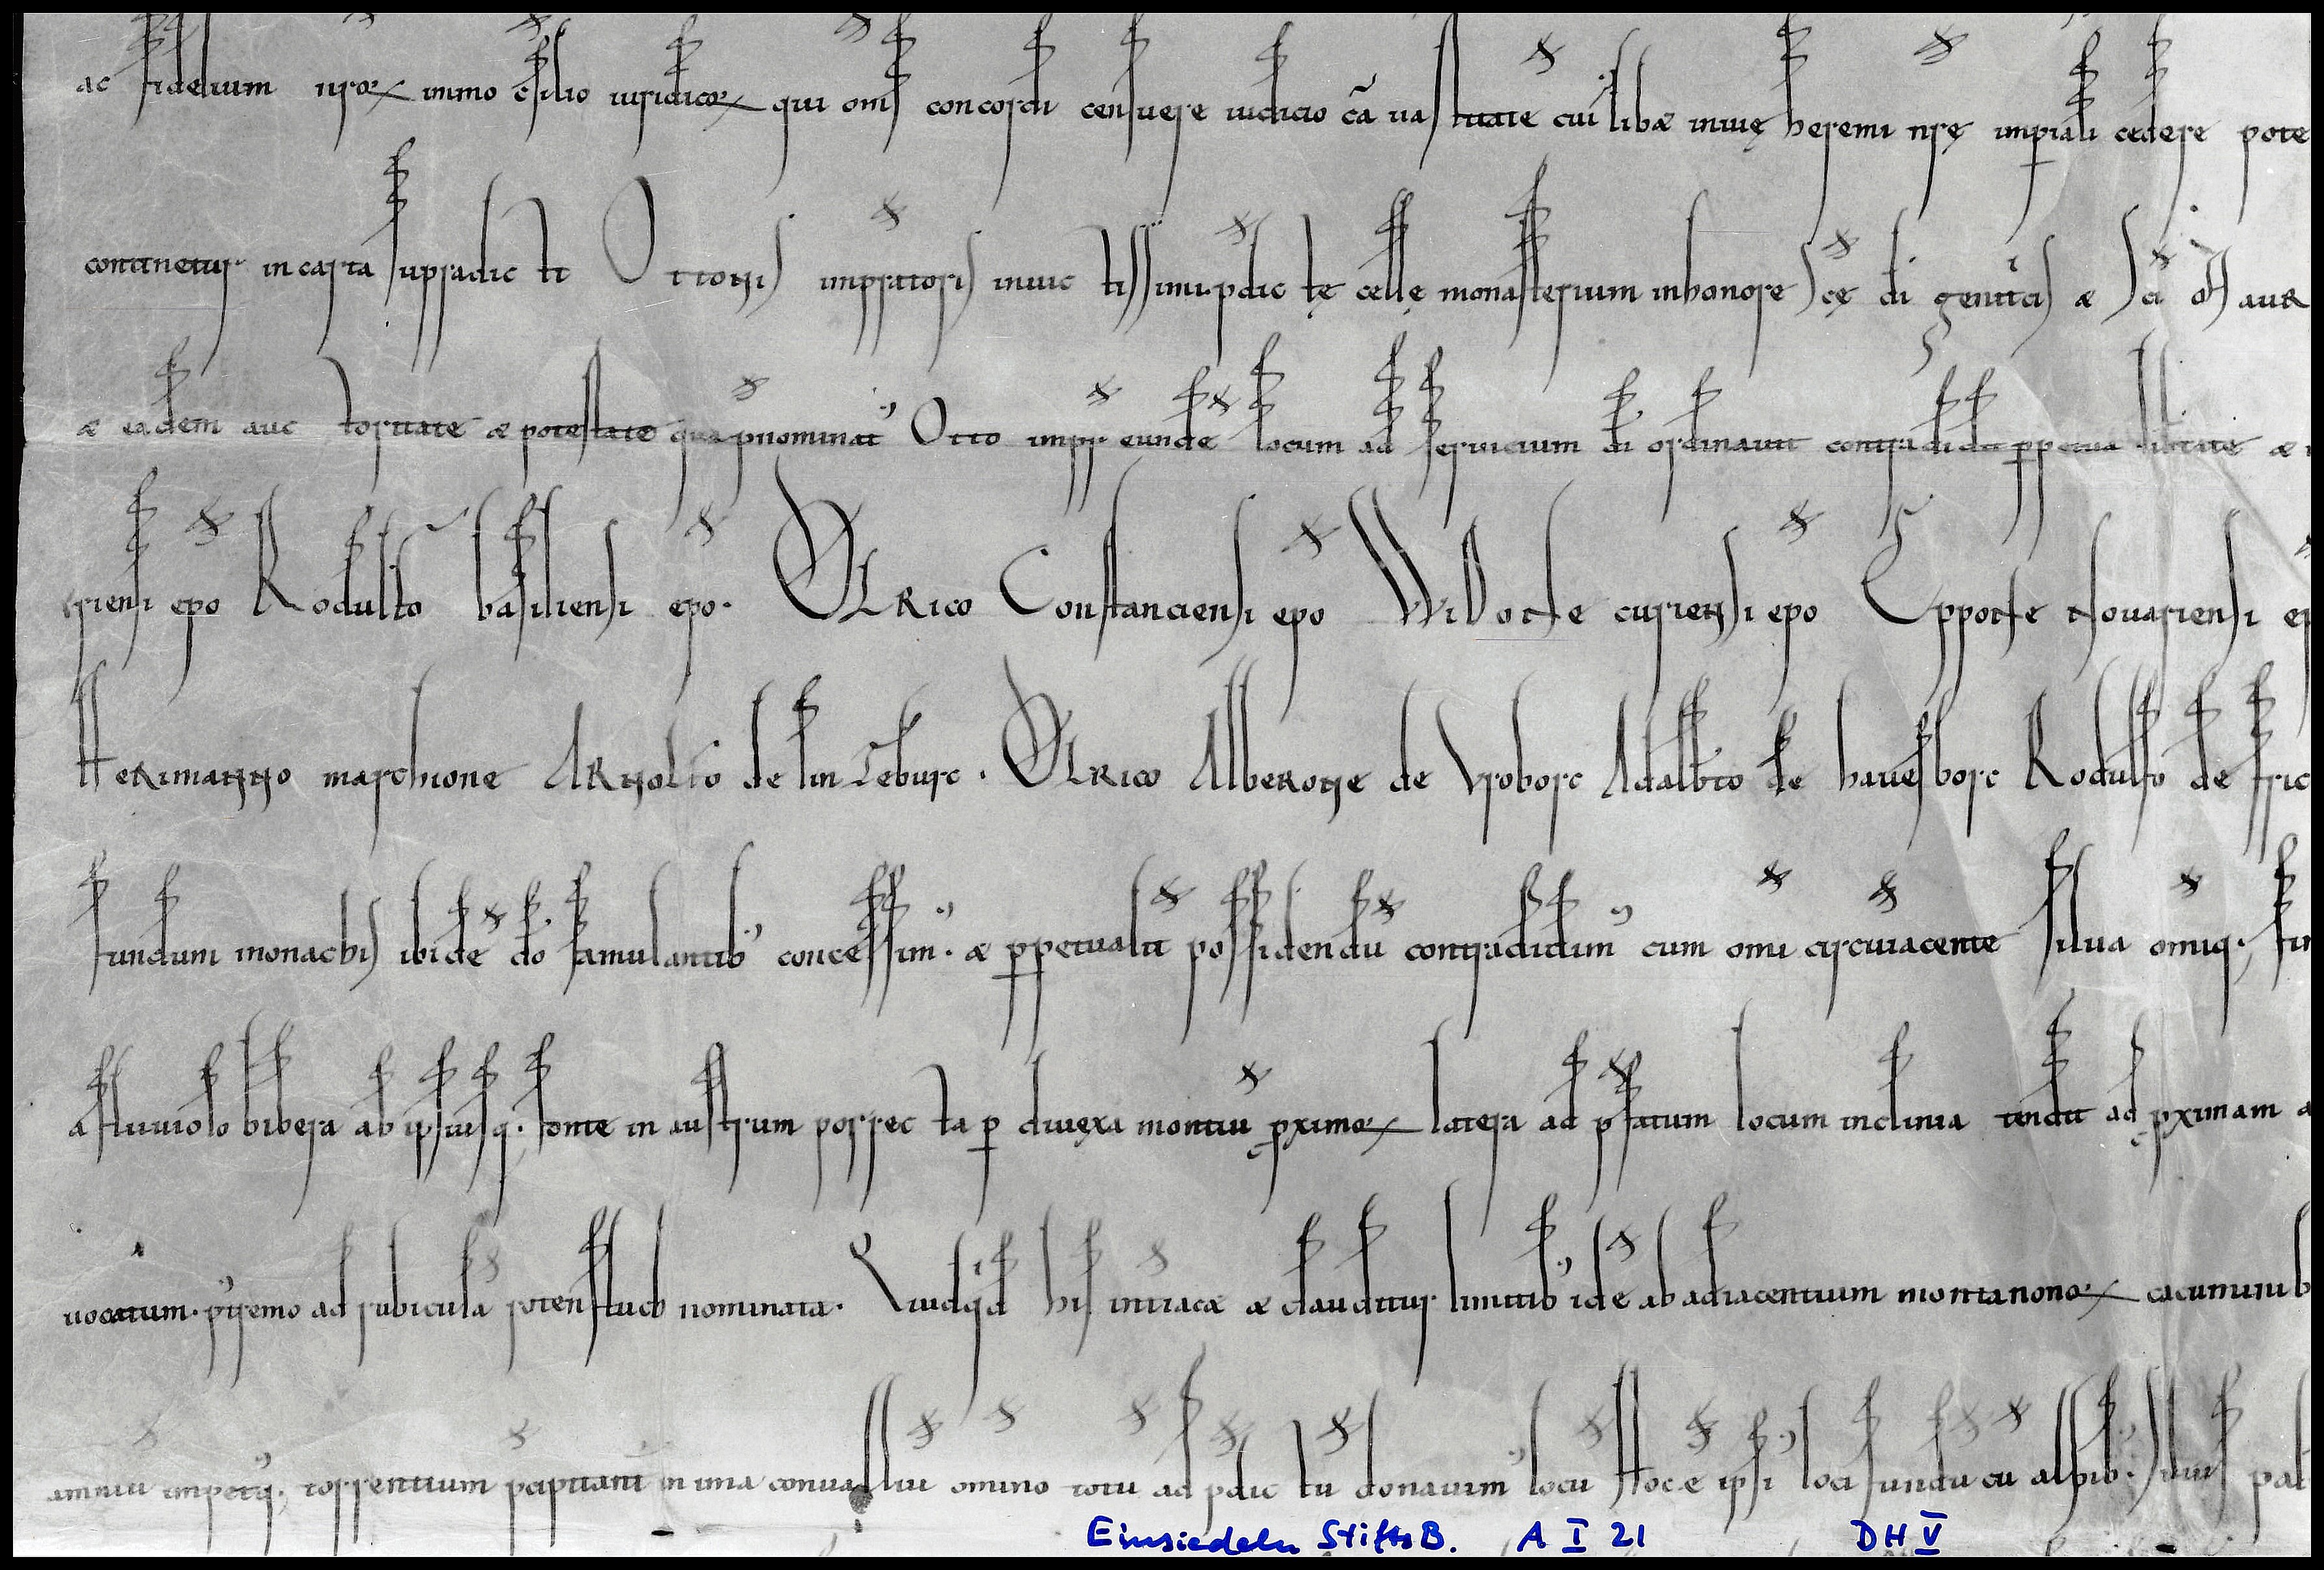 ac fidelium nr̄oꝝ immo c̄silio iuridicoꝝ qui om̄s concordi censuere iudicio c̄ā uastitate cui libæ inuię heremi nr̄ę imp̄iali cedere pote
continetur in carta sup̄radicti Ottonis imp̄ratoris inuictissimi. p̄dictę cellę monasterium in honore sc̄ę dī genitc̄is æ sc̄i Maur
æ eadem auctoritate æ potestate qua p̄nominat᾿ Otto imp̄r eundē locum ad seruicium dī ordinauit contradidit ꝑpetua lib̄tate æ
ensi ep̄o Rodulfo basiliensi ep̄o. ODLRico Constanciensi ep̄o WiDone curiensi ep̄o Eppone Nouariensi ep
HeRimanno marchione ARnolfo de linceburc. ODLRico AlbeRone de Vroborc Adalb̄to de hauesborc Rodulfo de fric
fundum monachis ibidē dō famulantib᾿ concessim᾿. æ ꝑpetualit̄ possidendū contradidim᾿ cum om̄i circūiacente silua om̄iq; fin
a fluuiolo bibera ab ipsiusq; fonte in austrum porrecta ꝑ diuęxa montiū ꝓximoꝝ latera ad p̄fatum locum inclinia tendit ad ꝓximam a
uocatum. p᾿remo ad rubiculā rotenfluo nominata. Quidq̇d his intiacæ æ clauditur limitib᾿ idē ab adiacentium montanoꝝ cacuminib
amniū impetū; torrentium p̄cipitant᾿ in ima conualliū omīno totū ad p̄dictū donauim᾿ locū Hoc ē ipsi᾿ loci fundū cū alpib᾿. siluis pal
Einsiedeln StiftsB. A I 21 DH V